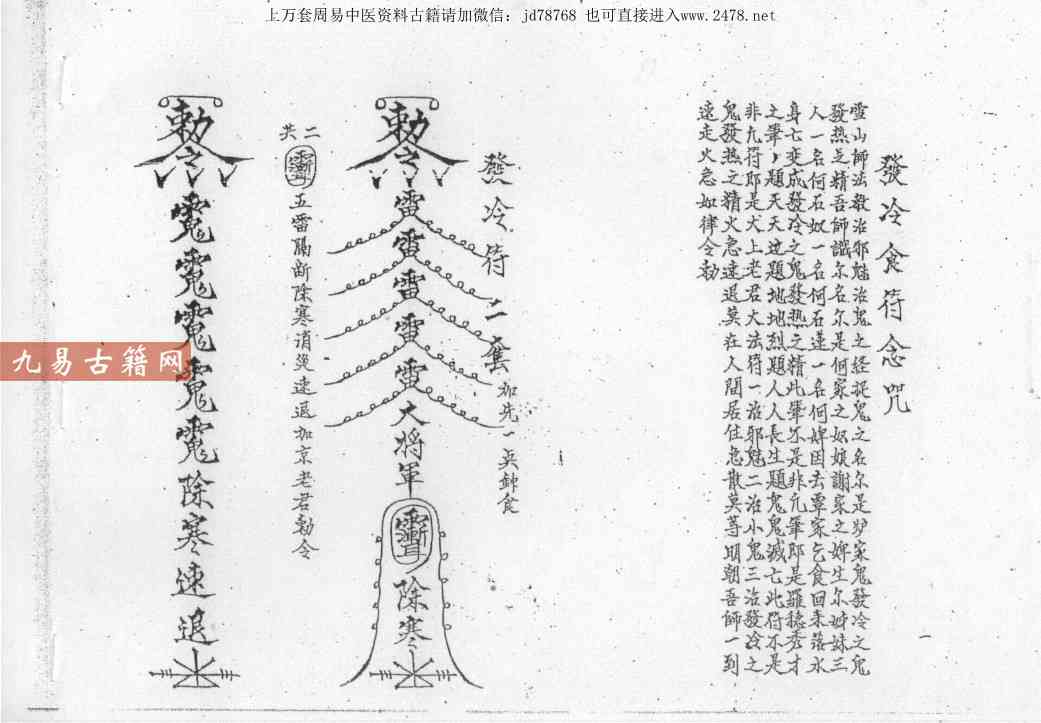 上万套周易中医资料古籍请加微信：jd78768 也可直接进入www.2478.net
發冷食符念咒
雪山師法教治邪魅治鬼之経捉鬼之名尔是炉家鬼發冷之鬼
發热之精吾師識尔名尔是何家之奴娘謝家之婢生尔姊妹三
人一名何石奴一名何石蓮一名何婢因去覃家乞食回来落水
身七变成發冷之鬼發热之精此筆不是非凡筆即是羅穏秀才
之筆，題天天迬題地地烈題人人長生題鬼鬼滅亡此符不是
非凡符即是太上老君大法符一治邪魅二治小鬼三治發冷之
鬼發热之精火急速退莫在人間居住急散莫等明朝吾師一到
速走火急如律令勅
發冷符二套
加先一矣鉮食
勅令
雷
雷
雷
雷
雷
大将軍
除寒
二共
五雷腸断除寒消災速退加京老君勅令
勅令
除寒速退
九易古籍网